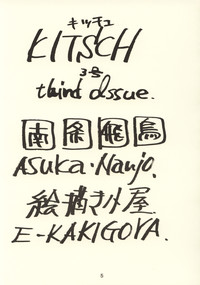 キッチュ
KITSCH
3号
third issue.
南条飛鳥
ASUKA・Nanjo.
絵描き小屋.
E-KAKIGOYA.
5